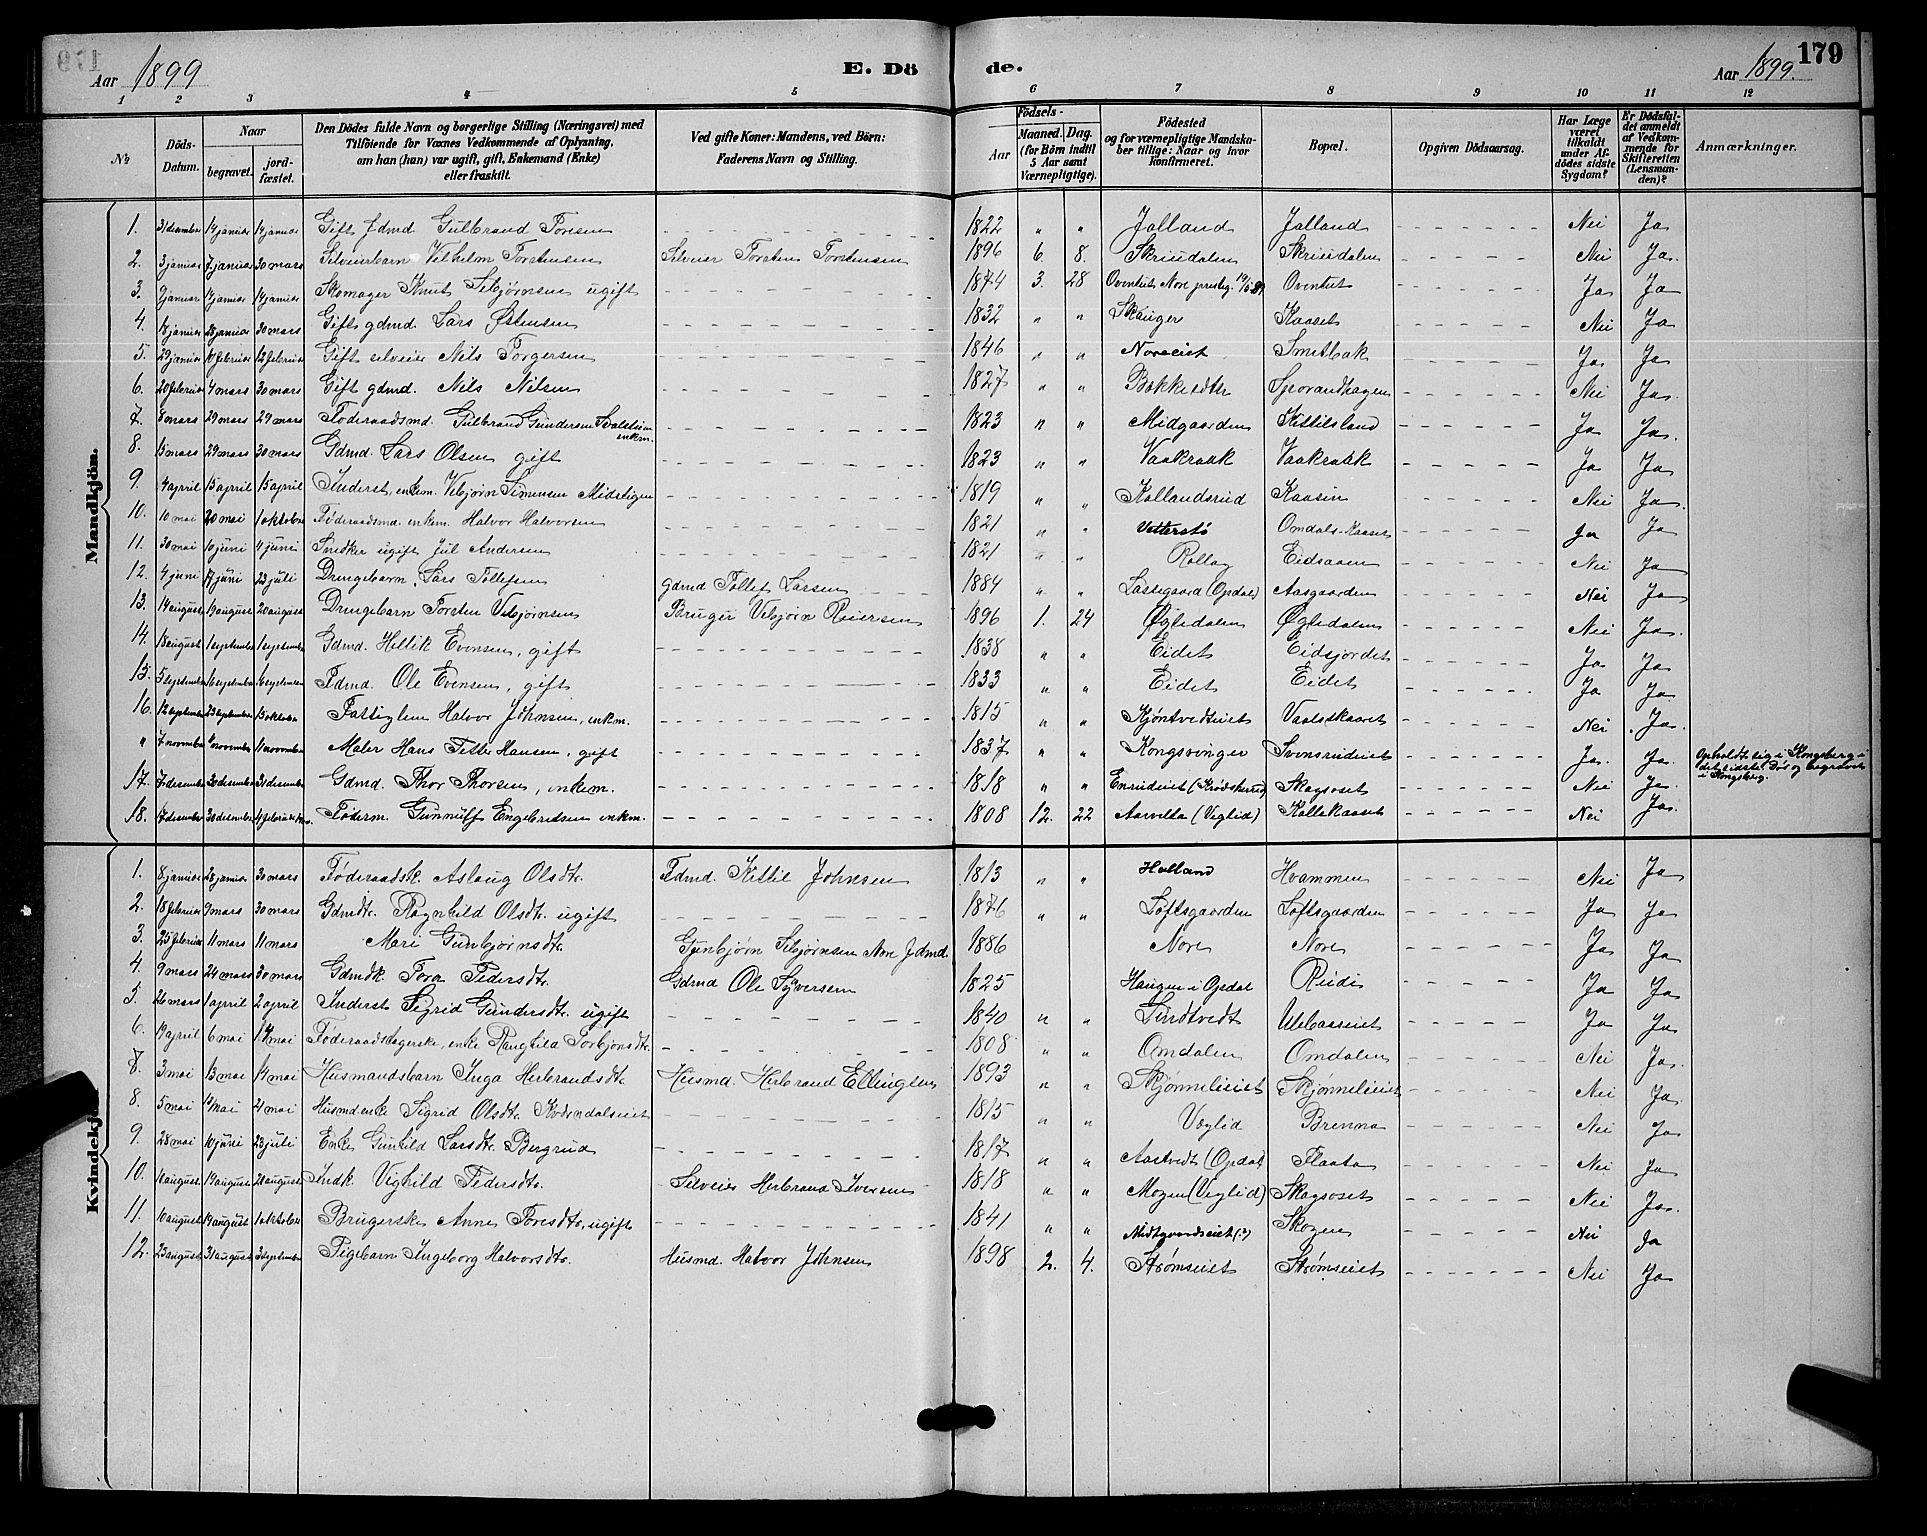 179
Aar 1899 E. Dö de. Aar 1899. 179
1 2 3 4 5 6 7 8 9 10 11 12
No Döds-Datum. Naar begravet. jordfæstet. Den Dödes fulde Navn og borgerlige Stilling (Næringsvei) med Tilföiende for Voxnes Vedkommende af Oplysning, om han (hun) var ugift, gift, Enkemand (Enke) eller fraskilt. Ved gifte Koner: Mandens, ved Börn: Faderens Navn og Stilling. Födsels- Aar Maaned. Dag. (for Börn indtil 5 Aar samt Værnepligtige). Födested og for værnepligtige Mandskaber tillige: Naar og hvor konfirmeret. Bopæl. Opgiven Dödsaarsag. Har Læge været tilkaldt under Afdödes sidste Sygdom? Er Dödsfaldet anmeldt af Vedkommende for Skifteretten (Lensmanden)? Anmærkninger.
Mandkjön.
1. 31 desember 14 januar 14 januar Gift fdmd Gulbrand Toresen - 1822 " " Jalland Jalland - Nei Ja
2. 3 januar 7 januar 30 mars Silveierbarn Vilhelm Torstensen Silveier Torsten Torstensen 1896 6. 8. Skriudalen Skriudalen - Nei Ja.
3. 9 januar 14 januar 14 januar Skomager Knut Sebjørnsen ugift - 1874 3. 28 Oventut Nore prestegj. Oventut - Ja Ja
4. 18 januar 28 januar 30 mars Gift gdmd. Lars Østensen - 1832 " " Skauger Kaaset - Nei Ja
5. 29 januar 10 februar 12 februar Gift selveier Nils Torgersen - 1846 " " Noreeiet Smitbak - Ja Ja
6. 20 februar 4 mars 30 mars Gift gdmd. Nils Nilsen - 1827 " " Sporandhagen - Nei Ja.
7. 8 mars 29 mars 29 mars Föderaadsmd. Gulbrand Gundersen enkm. - 1823 " " Midgaarden Kittilsland - Ja Ja.
8. 15 mars 29 mars 30 mars Gdmd. Lars Olsen gift - 1823 " " Vaakraak Vaakraak - Ja Ja
9. 4 april 15 april 15 april Inderst, enkem. Vebjørn Simensen Midstigen - 1819 " " Kollandsrud Kaasin - Nei Ja.
10. 10 mai 20 mai 1 oktober Føderaadsmd. enkem. Halvor Halvorsen - 1821 " " Vetterstø Omdals-Kaaset - Ja Ja
11. 30 mai 10 juni 4 juni Snedker ugift Jul Andersen - 1821 " " Rollag Eidsaaen - Nei Ja
12. 4 juni 17 juni 23 juli Drengebarn Lars Tollefsen gdmd Tollef Larsen 1884 " " Lassegaard (Opdal) Aasgaarden - Nei Ja
13. 14 august 19 august 20 august Drengebarn Torsten Vebjørnsen Bruger Vebjørn Reiersen 1896 1. 24 Øgledalen Øgledalen - Nei Ja.
14. 18 august 1 september 1 september Gdmd. Hellik Evensen, gift - 1838 " " Eidet Eidsjordet - Ja Ja
15. 5 september 16 september 16 september Fdmd. Ole Evensen, gift - 1833 " " Eidet Eidet - Ja Ja
16. 12 september 23 september 15 oktober Fattiglem Halvor Johnsen, enkm. - 1815 " " Kjøntvedteiet Vaalskaaset - Nei Ja.
" 7 november 11 november 11 november Maler Hans Petter Hansen, gift - 1837 " " Kongsvinger Svensrudeiet - Ja. Ja. Opholdt sig i Kongsberg i det sidste. Død og begravet i Kongsberg.
17. 17 desember 30 desember 31 desember Gdmd. Thor Thorsen, enkem. - 1818 " " Enrudeiet (Krødsherud) Skagsoset - Nei Ja.
18. 17 desember 30 desember 4 februar Føderm. Gunnulf Engebretsen enkm. - 1808 12. 22 Aarvelta (Veglid) Kollekaaset - Nei Ja.
Kvindekjön.
1. 8 januar 28 januar 30 mars Føderaadsk. Aslaug Olsdtr. Fdmd. Kittil Johnsen 1813 " " Holland Hvammen - Nei Ja
2. 18 februar 9 mars 30 mars Gdmdtr. Ragnhild Olsdtr. ugift - 1876 " " Loftsgaarden Loftsgaarden - Ja Ja
3. 25 februar 11 mars 11 mars Mari Gunbjørnsdtr. Gunbjørn Sebjørnsen Nore fdmd. 1886 " " Nore Nore - Ja Ja
4. 9 mars 24 mars 30 mars Gdmdk. Tora Pedersdtr. Gdmd Ole Syversen 1825 " " Haugen i Opdal Rudi - Ja Ja
5. 26 mars 1 april 2 april Inderst Sigrid Gundersdtr. ugift - 1840 " " Tundtvedt - Ja Ja
6. 19 april 6 mai 14 mai Føderaadstagerske, enke Ranghild Torbjønsdtr. - 1808 " " Omdalen Omdalen - Nei Ja.
8. 3 mai 13 mai 14 mai Husmandsbarn Inga Herbrandsdtr. Husmd. Herbrand Ellingsen 1893 " " Skjønneliеiet Skjønnelieiet - Nei Ja.
8. 5 mai 14 mai 21 mai Husmd.enke Sigrid Olsdtr. - 1815 " " Veglid Brenna - Nei Ja
9. 28 mai 10 juni 23 juli Enke Gunhild Larsdtr. Bergrud - 1817 " " Aastvedt (Opdal) Flaata - Nei Ja
10. 11 august 19 august 20 august Indk. Vighild Pedersdtr. Selveier Herbrand Iversen 1818 " " Mogen (Veglid) Skagsoset - Nei Ja.
11. 10 august 19 august 1 oktober Brugerske Anne Toresdtr, ugift - 1841 " " Midtgaardseiet (?) Skogen - Nei Ja
12. 23 august 31 august 3 september Pigebarn Ingeborg Halvorsdtr. Husmd. Halvor Johnsen 1898 2. 4. Strømseiet Strømseiet - Nei Ja